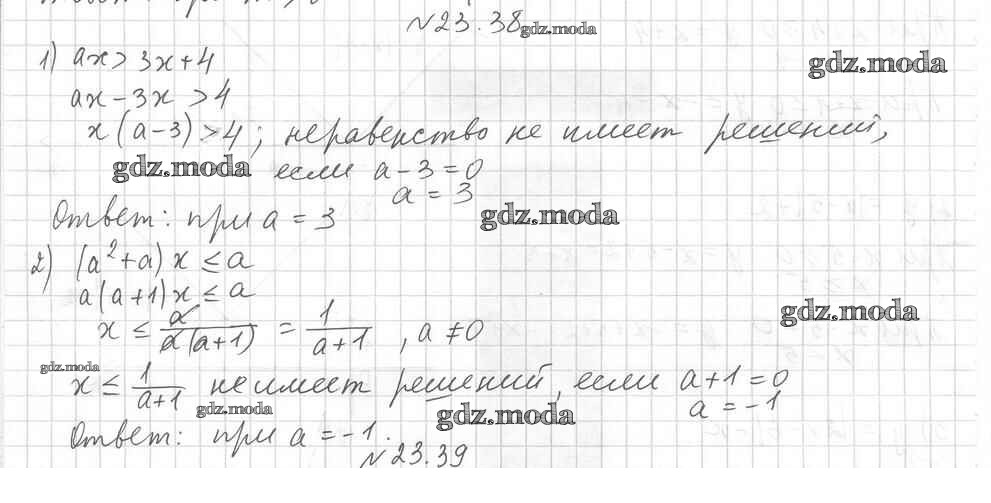 №23.38 gdz.moda
1) ax > 3x + 4
gdz.moda
ax - 3x > 4
x(a-3) > 4; неравенство не имеет решений,
gdz.moda если a - 3 = 0
a = 3
gdz.moda
Ответ: при a = 3
2) (a² + a)x ≤ a
a(a+1)x ≤ a
x ≤ a/(a(a+1)) = 1/(a+1), a ≠ 0
gdz.moda
gdz.moda
x ≤ 1/(a+1) не имеет решений, если a+1 = 0
gdz.moda
gdz.moda
a = -1
Ответ: при a = -1.
№23.39